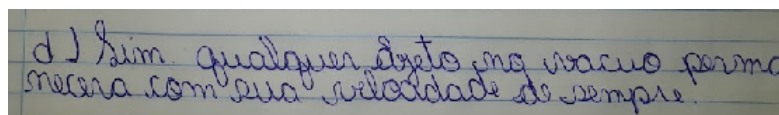 d) Sim. qualquer ojeto no vacuo perma
necera com sua velocidade de sempre.